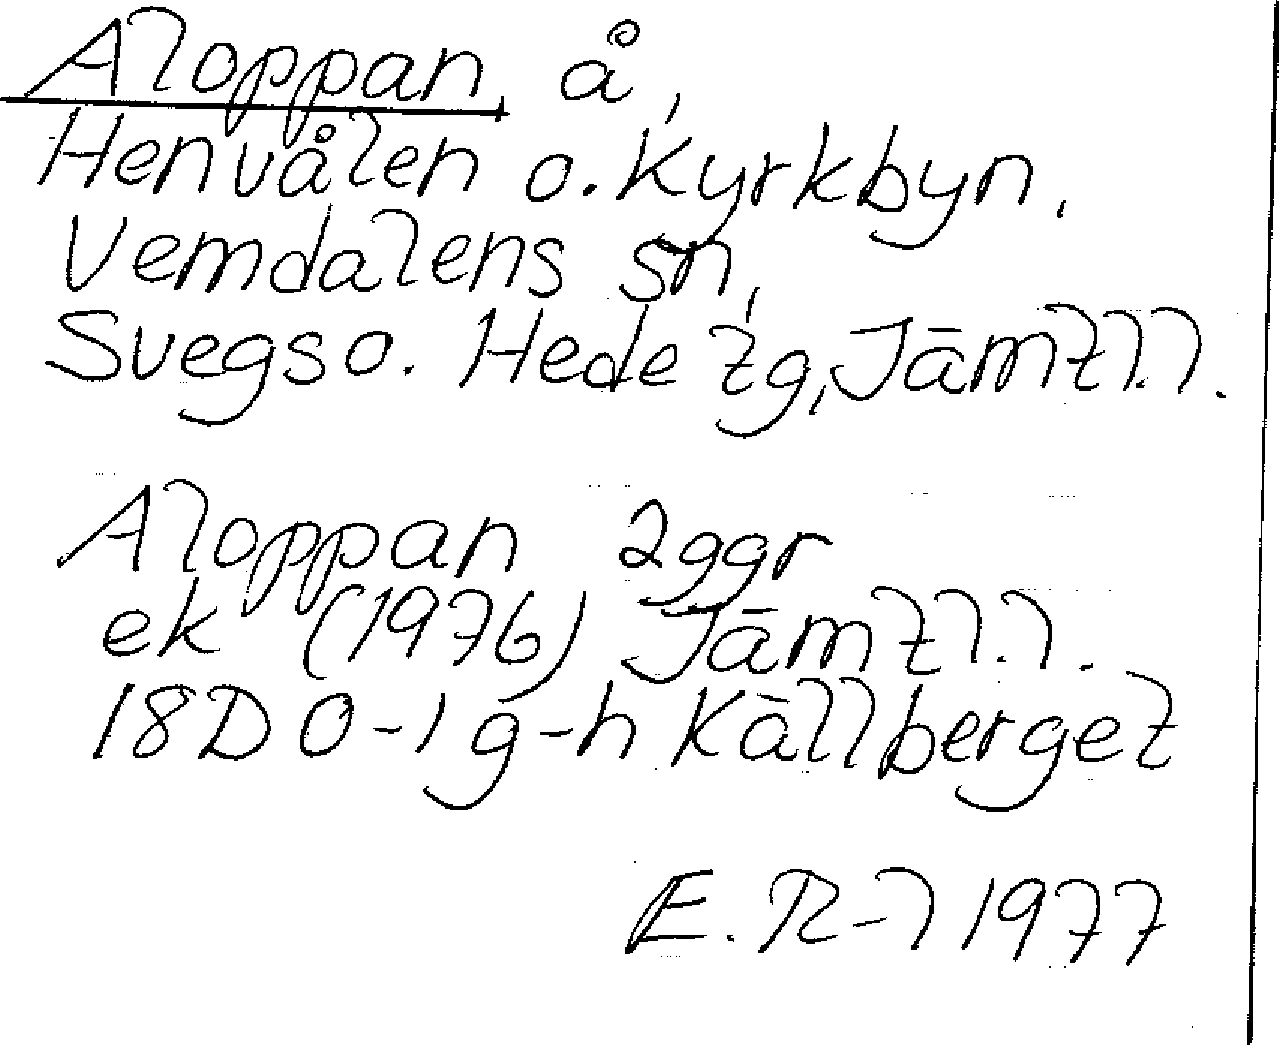 Aloppan, å,
Henvålen o. Kyrkbyn,
Vemdalens sn,
Svegs o. Hede tg, Jämtl.l.
Aloppan 2ggr
ek (1976) Jämtl.l.
18D 0-1 g-h Källberget
E.R-l 1977